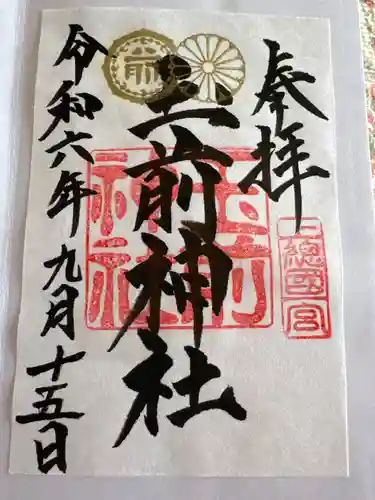 奉拝
上総国一宮
玉前神社
玉前神社
令和六年九月十五日